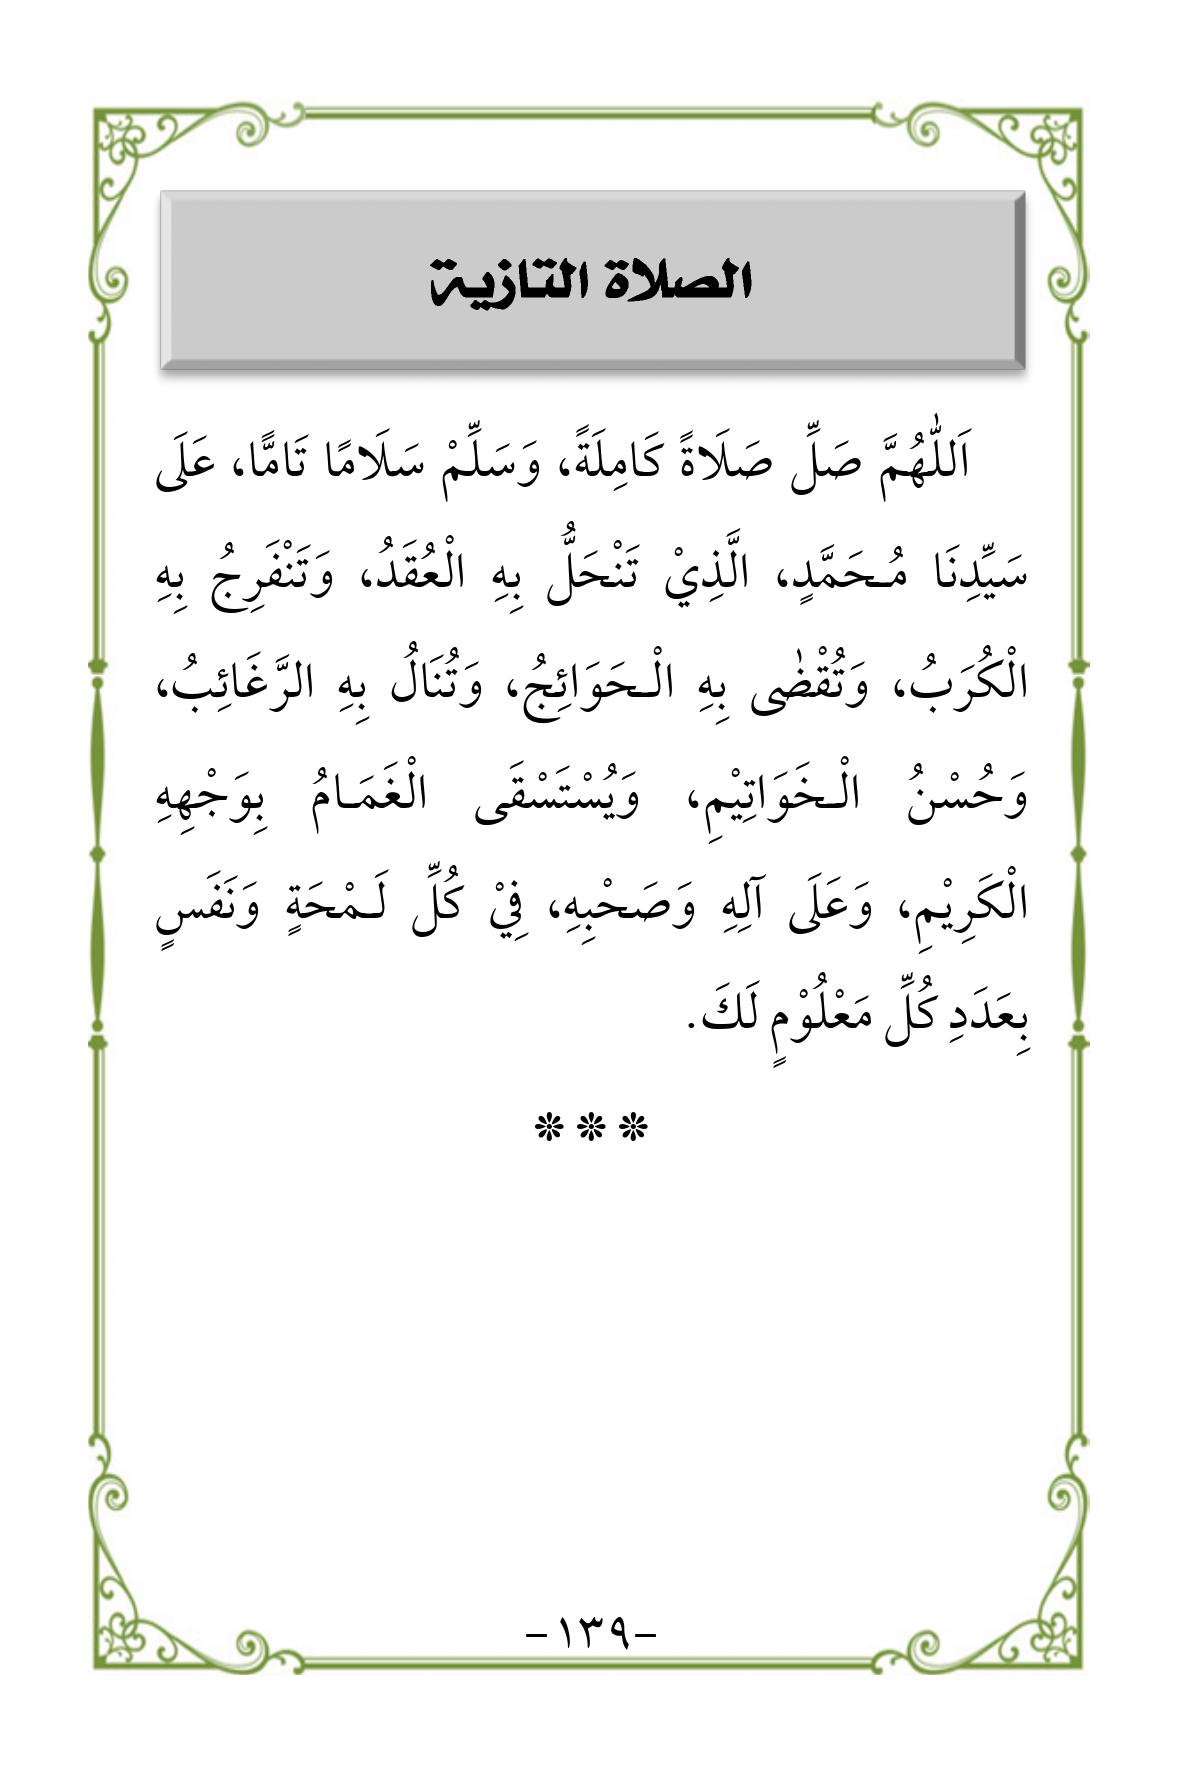 الصلاة التازية
اَللّٰهُمَّ صَلِّ صَلَاةً كَامِلَةً، وَسَلِّمْ سَلَامًا تَامًّا، عَلَى
سَيِّدِنَا مُـحَمَّدٍ، الَّذِيْ تَنْحَلُّ بِهِ الْعُقَدُ، وَتَنْفَرِجُ بِهِ
الْكُرَبُ، وَتُقْضٰى بِهِ الْـحَوَائِجُ، وَتُنَالُ بِهِ الرَّغَائِبُ،
وَحُسْنُ الْـخَوَاتِيْمِ، وَيُسْتَسْقَى الْغَمَـامُ بِوَجْهِهِ
الْكَرِيْمِ، وَعَلَى آلِهِ وَصَحْبِهِ، فِيْ كُلِّ لَـمْحَةٍ وَنَفَسٍ
بِعَدَدِ كُلِّ مَعْلُوْمٍ لَكَ.
❊ ❊ ❊
-١٣٩-